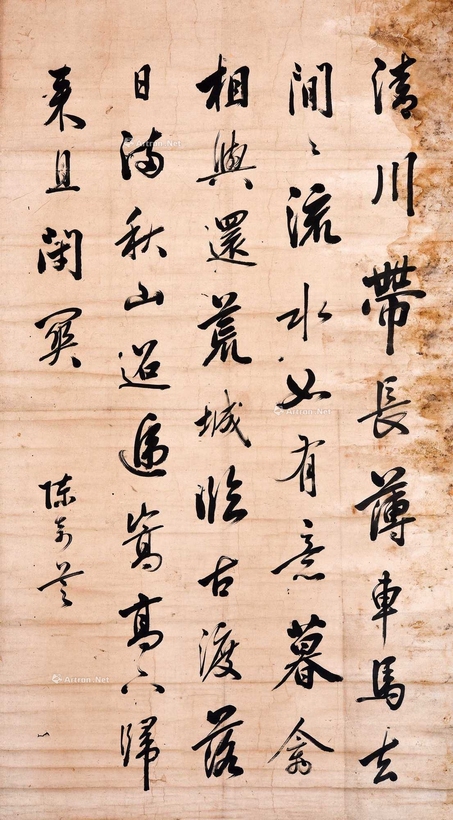 清川帶長薄車馬去
間〻流水如有意暮禽
相與還荒城臨古渡落
日滿秋山迢遞嵩高下歸
来且閉關
陳
Artron.Net
Artron.Net
Artron.Net
Artron.Net